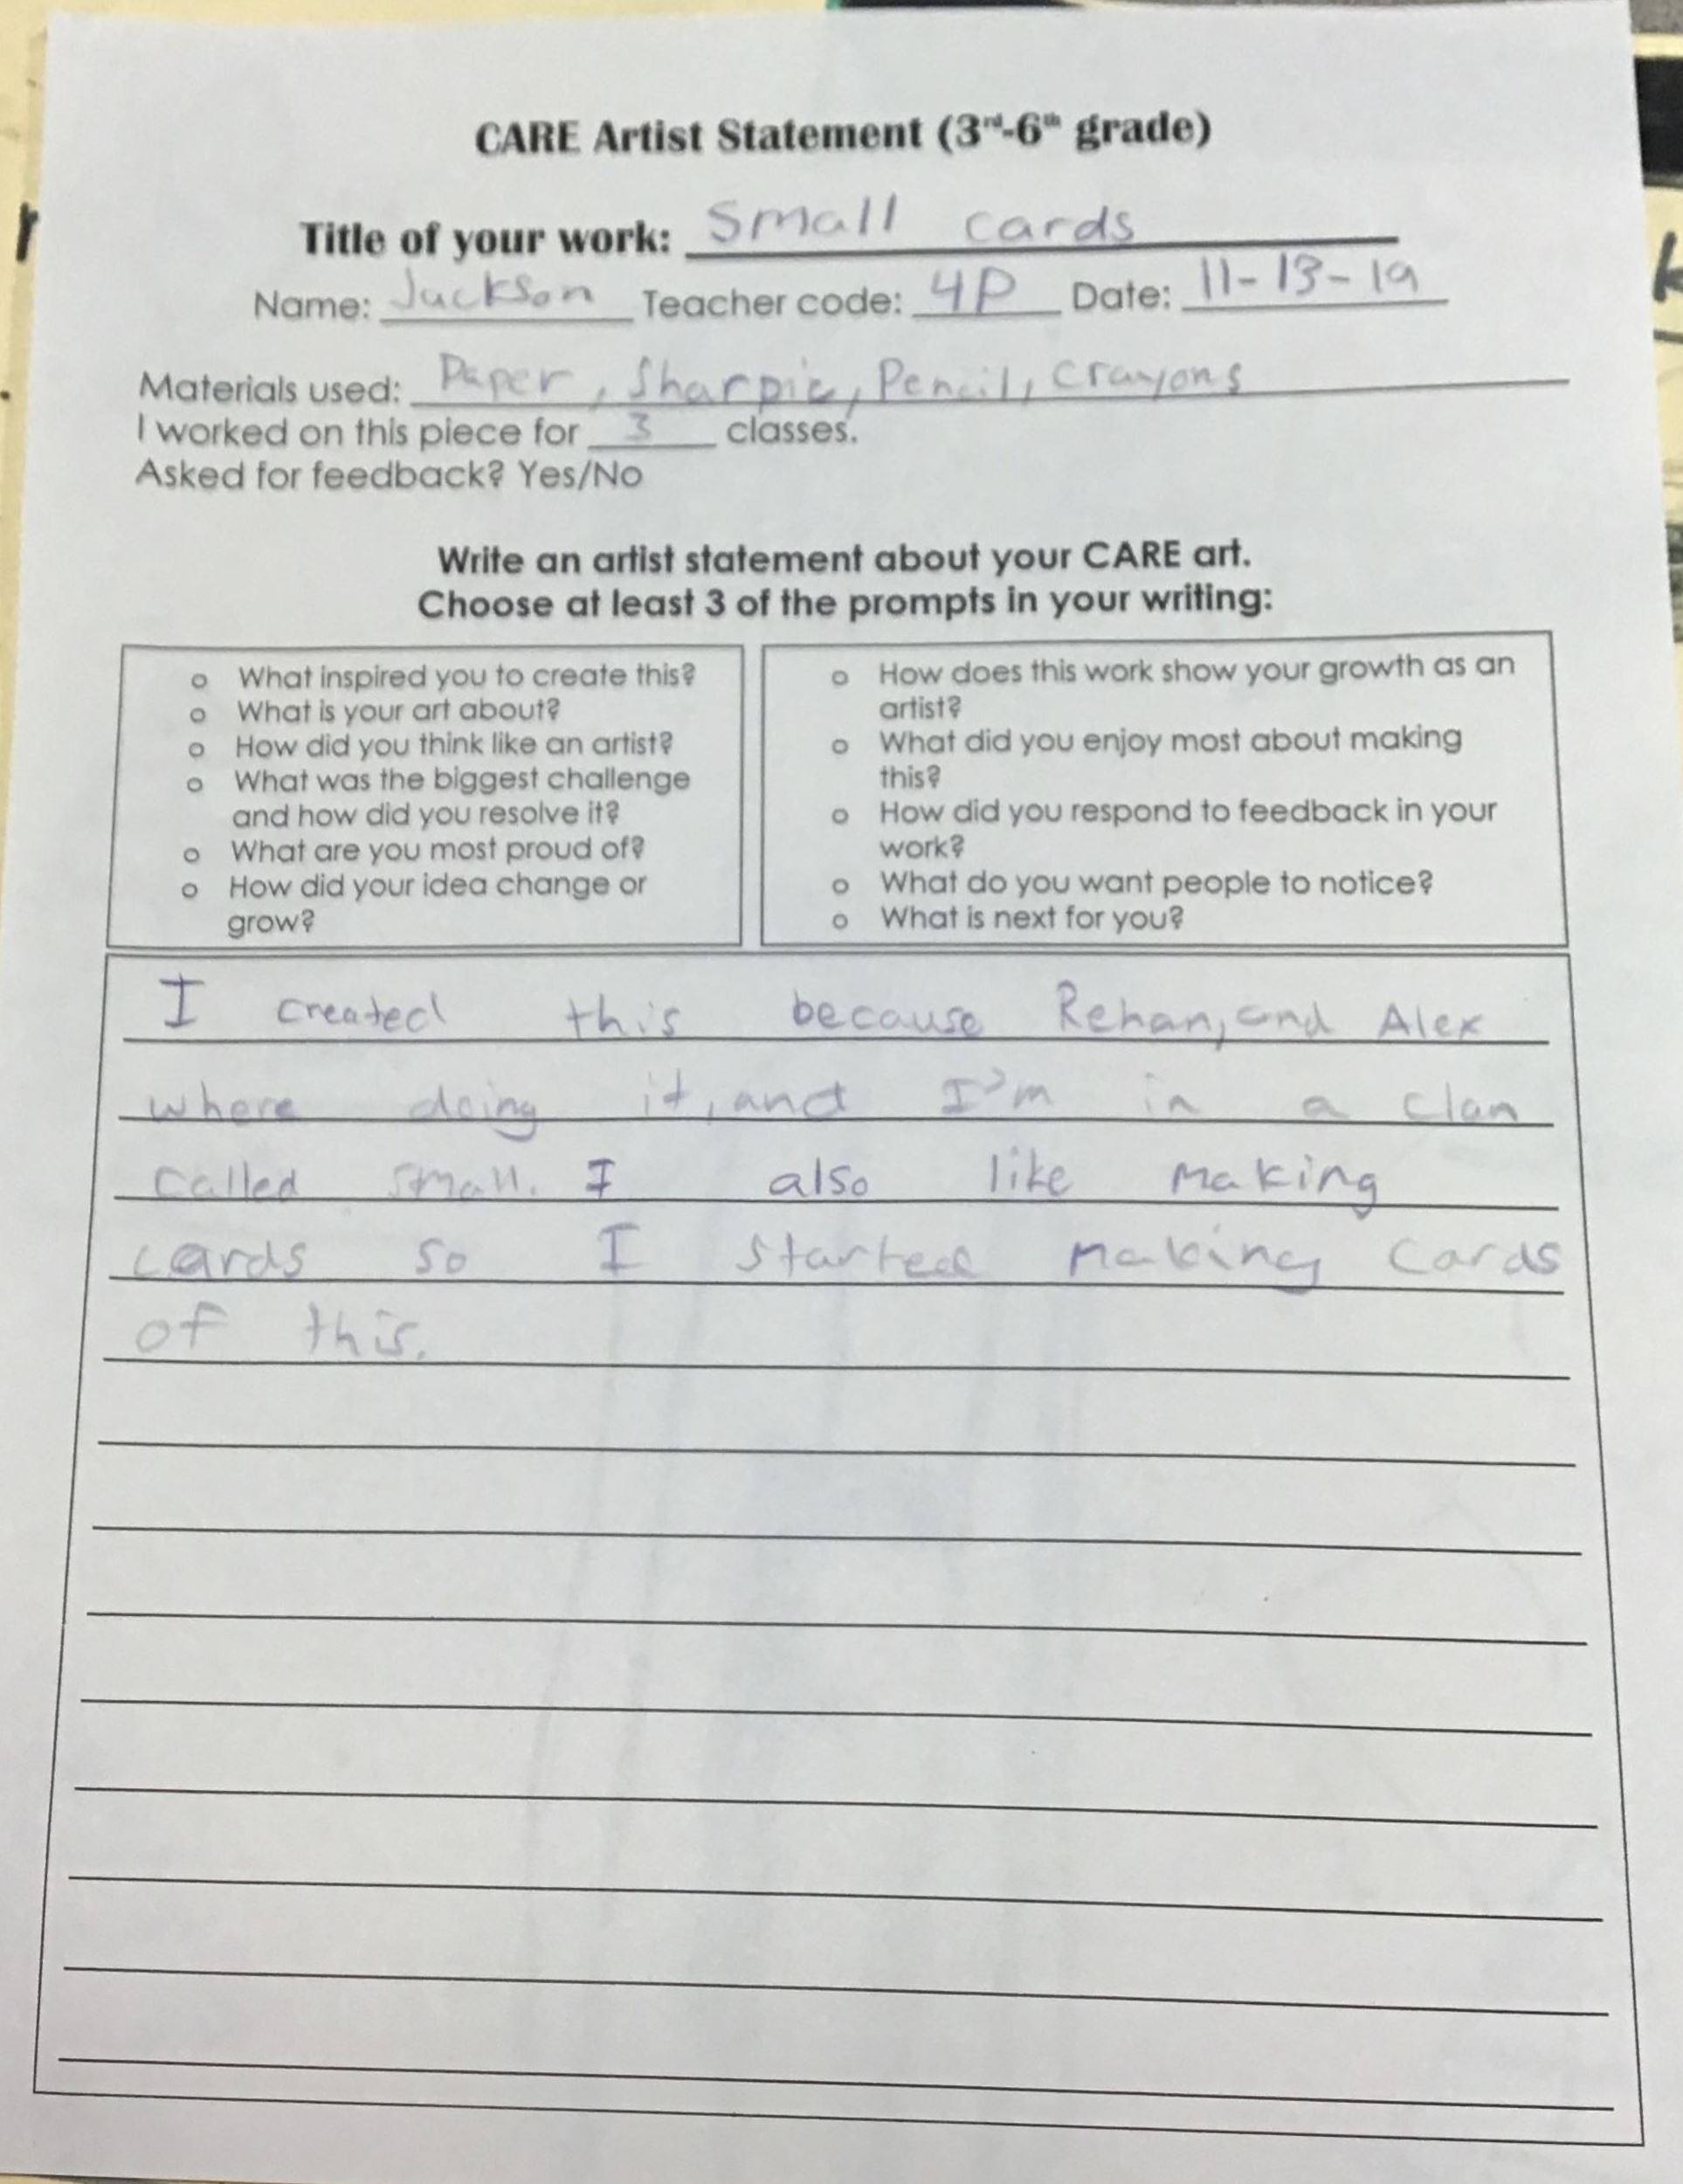 CARE Artist Statement (3rd-6th grade)
Title of your work: Small cards
Name: Jackson Teacher code: 4P Date: 11-13-19
Materials used: Paper, Sharpie, Pencil, Crayons
I worked on this piece for 3 classes.
Asked for feedback? Yes/No
Write an artist statement about your CARE art.
Choose at least 3 of the prompts in your writing:
o What inspired you to create this?
o What is your art about?
o How did you think like an artist?
o What was the biggest challenge
and how did you resolve it?
o What are you most proud of?
o How did your idea change or
grow?
o How does this work show your growth as an
artist?
o What did you enjoy most about making
this?
o How did you respond to feedback in your
work?
o What do you want people to notice?
o What is next for you?
I created this because Rehan, and Alex
where doing it, and I'm in a clan
called small. I also like making
cards so I started making cards
of this.